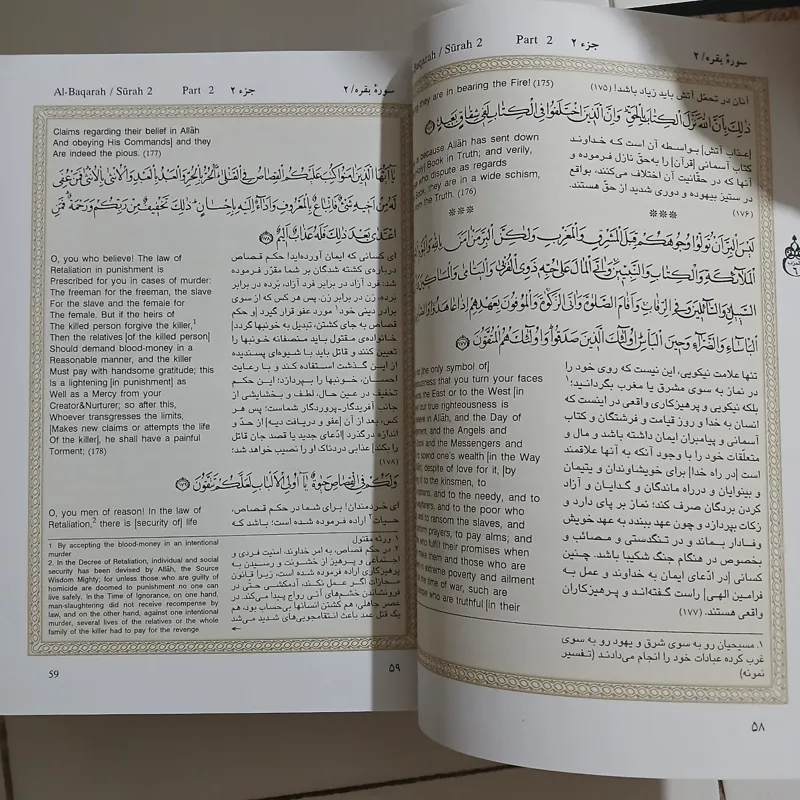 Al-Baqarah / Sūrah 2 Part 2 جزء ۲ سورهٔ بقره/۲
they are in bearing the Fire! (175)
آنان در تحمّل آتش باید زیاد باشد! (۱۷۵)
ذٰلِكَ بِأَنَّ اللهَ نَزَّلَ الْكِتَابَ بِالْحَقِّ وَإِنَّ الَّذِينَ اخْتَلَفُوا فِي الْكِتَابِ لَفِي شِقَاقٍ بَعِيدٍ
is because Allāh has sent down
Book in Truth; and verily,
who dispute as regards
Book, they are in a wide schism,
from the Truth. (176)
[عذاب آتش] بواسطه آن است که خداوند
کتاب آسمانی [قرآن] را به‌حق نازل فرموده و
آنها که در حقّانیت آن اختلاف می‌کنند، بواقع
در ستیز بیهوده و دوری شدید از حق هستند.
(۱۷۶)
*** ***
لَيْسَ الْبِرَّ أَنْ تُوَلُّوا وُجُوهَكُمْ قِبَلَ الْمَشْرِقِ وَالْمَغْرِبِ وَلٰكِنَّ الْبِرَّ مَنْ آمَنَ بِاللهِ وَالْيَوْمِ
الْمَلَائِكَةِ وَالْكِتَابِ وَالنَّبِيِّينَ وَآتَى الْمَالَ عَلَىٰ حُبِّهِ ذَوِي الْقُرْبَىٰ وَالْيَتَامَىٰ وَالْمَسَاكِينَ
السَّبِيلِ وَالسَّائِلِينَ وَفِي الرِّقَابِ وَأَقَامَ الصَّلَوٰةَ وَآتَى الزَّكَوٰةَ وَالْمُوفُونَ بِعَهْدِهِمْ إِذَا عَاهَدُوا
الْبَأْسَاءِ وَالضَّرَّاءِ وَحِينَ الْبَأْسِ أُولٰئِكَ الَّذِينَ صَدَقُوا وَأُولٰئِكَ هُمُ الْمُتَّقُونَ
[the only symbol of]
that you turn your faces
the East or to the West [in
but true righteousness is
believe in Allāh, and the Day of
and the Angels and
Book and the Messengers and
to spend one's wealth [in the Way
despite of love for it, [by
it to the kinsmen, to
and to the needy, and to
and to the poor who
and to ransom the slaves, and
perform prayers, to pay alms; and
who fulfil their promises when
make them and those who are
in extreme poverty and ailment
time of war, such are
who are truthful [in their
تنها علامت نیکویی، این نیست که روی خود را
در نماز به سوی مشرق یا مغرب بگردانید؛۱
بلکه نیکویی و پرهیزگاری واقعی در اینست که
انسان به خدا و روز قیامت و فرشتگان و کتاب
آسمانی و پیامبران ایمان داشته باشد و مال و
متعلّقات خود را با وجود آنکه به آنها علاقمند
است [در راه خدا] برای خویشاوندان و یتیمان
و بینوایان و درراه ماندگان و گدایان و آزاد
کردن بردگان صرف کند؛ نماز بر پای دارد و
زکات بپردازد و چون عهد ببندد به عهد خویش
وفادار بماند و در تنگدستی و مصائب و
بخصوص در هنگام جنگ شکیبا باشد. چنین
کسانی [در ادّعای ایمان به خداوند و عمل به
فرامین الهی] راست گفته‌اند و پرهیزکاران
واقعی هستند. (۱۷۷)
۱. مسیحیان رو به سوی شرق و یهود رو به سوی
غرب کرده عبادات خود را انجام می‌دادند (تفسیر
نمونه)
۵۸
Al-Baqarah / Sūrah 2 Part 2 جزء ۲ سورهٔ بقره/۲
Claims regarding their belief in Allāh
And obeying His Commands] and they
Are indeed the pious. (177)
يَا أَيُّهَا الَّذِينَ آمَنُوا كُتِبَ عَلَيْكُمُ الْقِصَاصُ فِي الْقَتْلَى الْحُرُّ بِالْحُرِّ وَالْعَبْدُ بِالْعَبْدِ وَالْأُنْثَىٰ بِالْأُنْثَىٰ فَمَنْ عُفِيَ
لَهُ مِنْ أَخِيهِ شَيْءٌ فَاتِّبَاعٌ بِالْمَعْرُوفِ وَأَدَاءٌ إِلَيْهِ بِإِحْسَانٍ ذٰلِكَ تَخْفِيفٌ مِنْ رَبِّكُمْ وَرَحْمَةٌ فَمَنِ
اعْتَدَىٰ بَعْدَ ذٰلِكَ فَلَهُ عَذَابٌ أَلِيمٌ ﴿١٧٨﴾
O, you who believe! The law of
Retaliation in punishment is
Prescribed for you in cases of murder:
The freeman for the freeman, the slave
For the slave and the female for
The female. But if the heirs of
The killed person forgive the killer,1
Then the relatives [of the killed person]
Should demand blood-money in a
Reasonable manner, and the killer
Must pay with handsome gratitude; this
Is a lightening [in punishment] as
Well as a Mercy from your
Creator&Nurturer; so after this,
Whoever transgresses the limits,
[Makes new claims or attempts the life
Of the killer], he shall have a painful
Torment; (178)
ای کسانی که ایمان آورده‌اید! حکم قصاص
درباره‌ی کشته شدگان بر شما مقرّر فرموده
شد: فرد آزاد در برابر فرد آزاد، بَرده در برابر
بَرده، زن در برابر زن. پس هر کس که از سوی
برادر دینی خود۱ مورد عفو قرار گیرد [و حکم
قصاص به جای کشتن، تبدیل به خونبها گردد]
خانواده‌ی مقتول باید منصفانه خونبها را
تعیین کنند و قاتل باید با شیوه‌ای پسندیده
از این گذشت استفاده کند و با رعایت
احسان، خونبها را بپردازد؛ این حکم
تخفیف در عین حال، لطف و بخشایشی از
جانب آفریدگار-پروردگار شماست؛ پس هر
کس، بعد از آن [عفو و دریافت دیه] از حدّ و
اندازه درگذرد [ادّعای جدید یا قصد جان قاتل
را بکند] عذابی دردناک او را نصیب خواهد شد؛
(۱۷۸)
وَلَكُمْ فِي الْقِصَاصِ حَيَوٰةٌ يَا أُولِي الْأَلْبَابِ لَعَلَّكُمْ تَتَّقُونَ ﴿١٧٩﴾
O, you men of reason! In the law of
Retaliation,2 there is [security of] life
ای خردمندان! برای شما در حکم قصاص،
حیات۲ اراده فرموده شده است؛ باشد که
1. By accepting the blood-money in an intentional
murder
2. In the Decree of Retaliation, individual and social
security has been devised by Allāh, the Source
Wisdom Mighty; for unless those who are guilty of
homicide are doomed to punishment no one can
live safely. In the Time of Ignorance, on one hand,
man-slaughtering did not receive recompense by
law, and on the other hand, against one intentional
murder, several lives of the relatives or the whole
family of the killer had to pay for the revenge
۱ ورثه مقتول
۲. در حکم قصاص، به امر خداوند، امنیت فردی و
اجتماعی و پرهیز از خشونت و رسیدن به
پرهیزکاری اراده فرموده شده است، زیرا قانون
مجازات اگر عمل نکند، آدمکشی حتّی در
فرونشاندن خشم‌های آنی رواج پیدا می‌کند. در
عصر جاهلی، هم کشتن انسانها بی‌حساب بود، هم
یک قتل عمد باعث انتقامجویی‌های شدید می‌شد
←
59 ۵۹